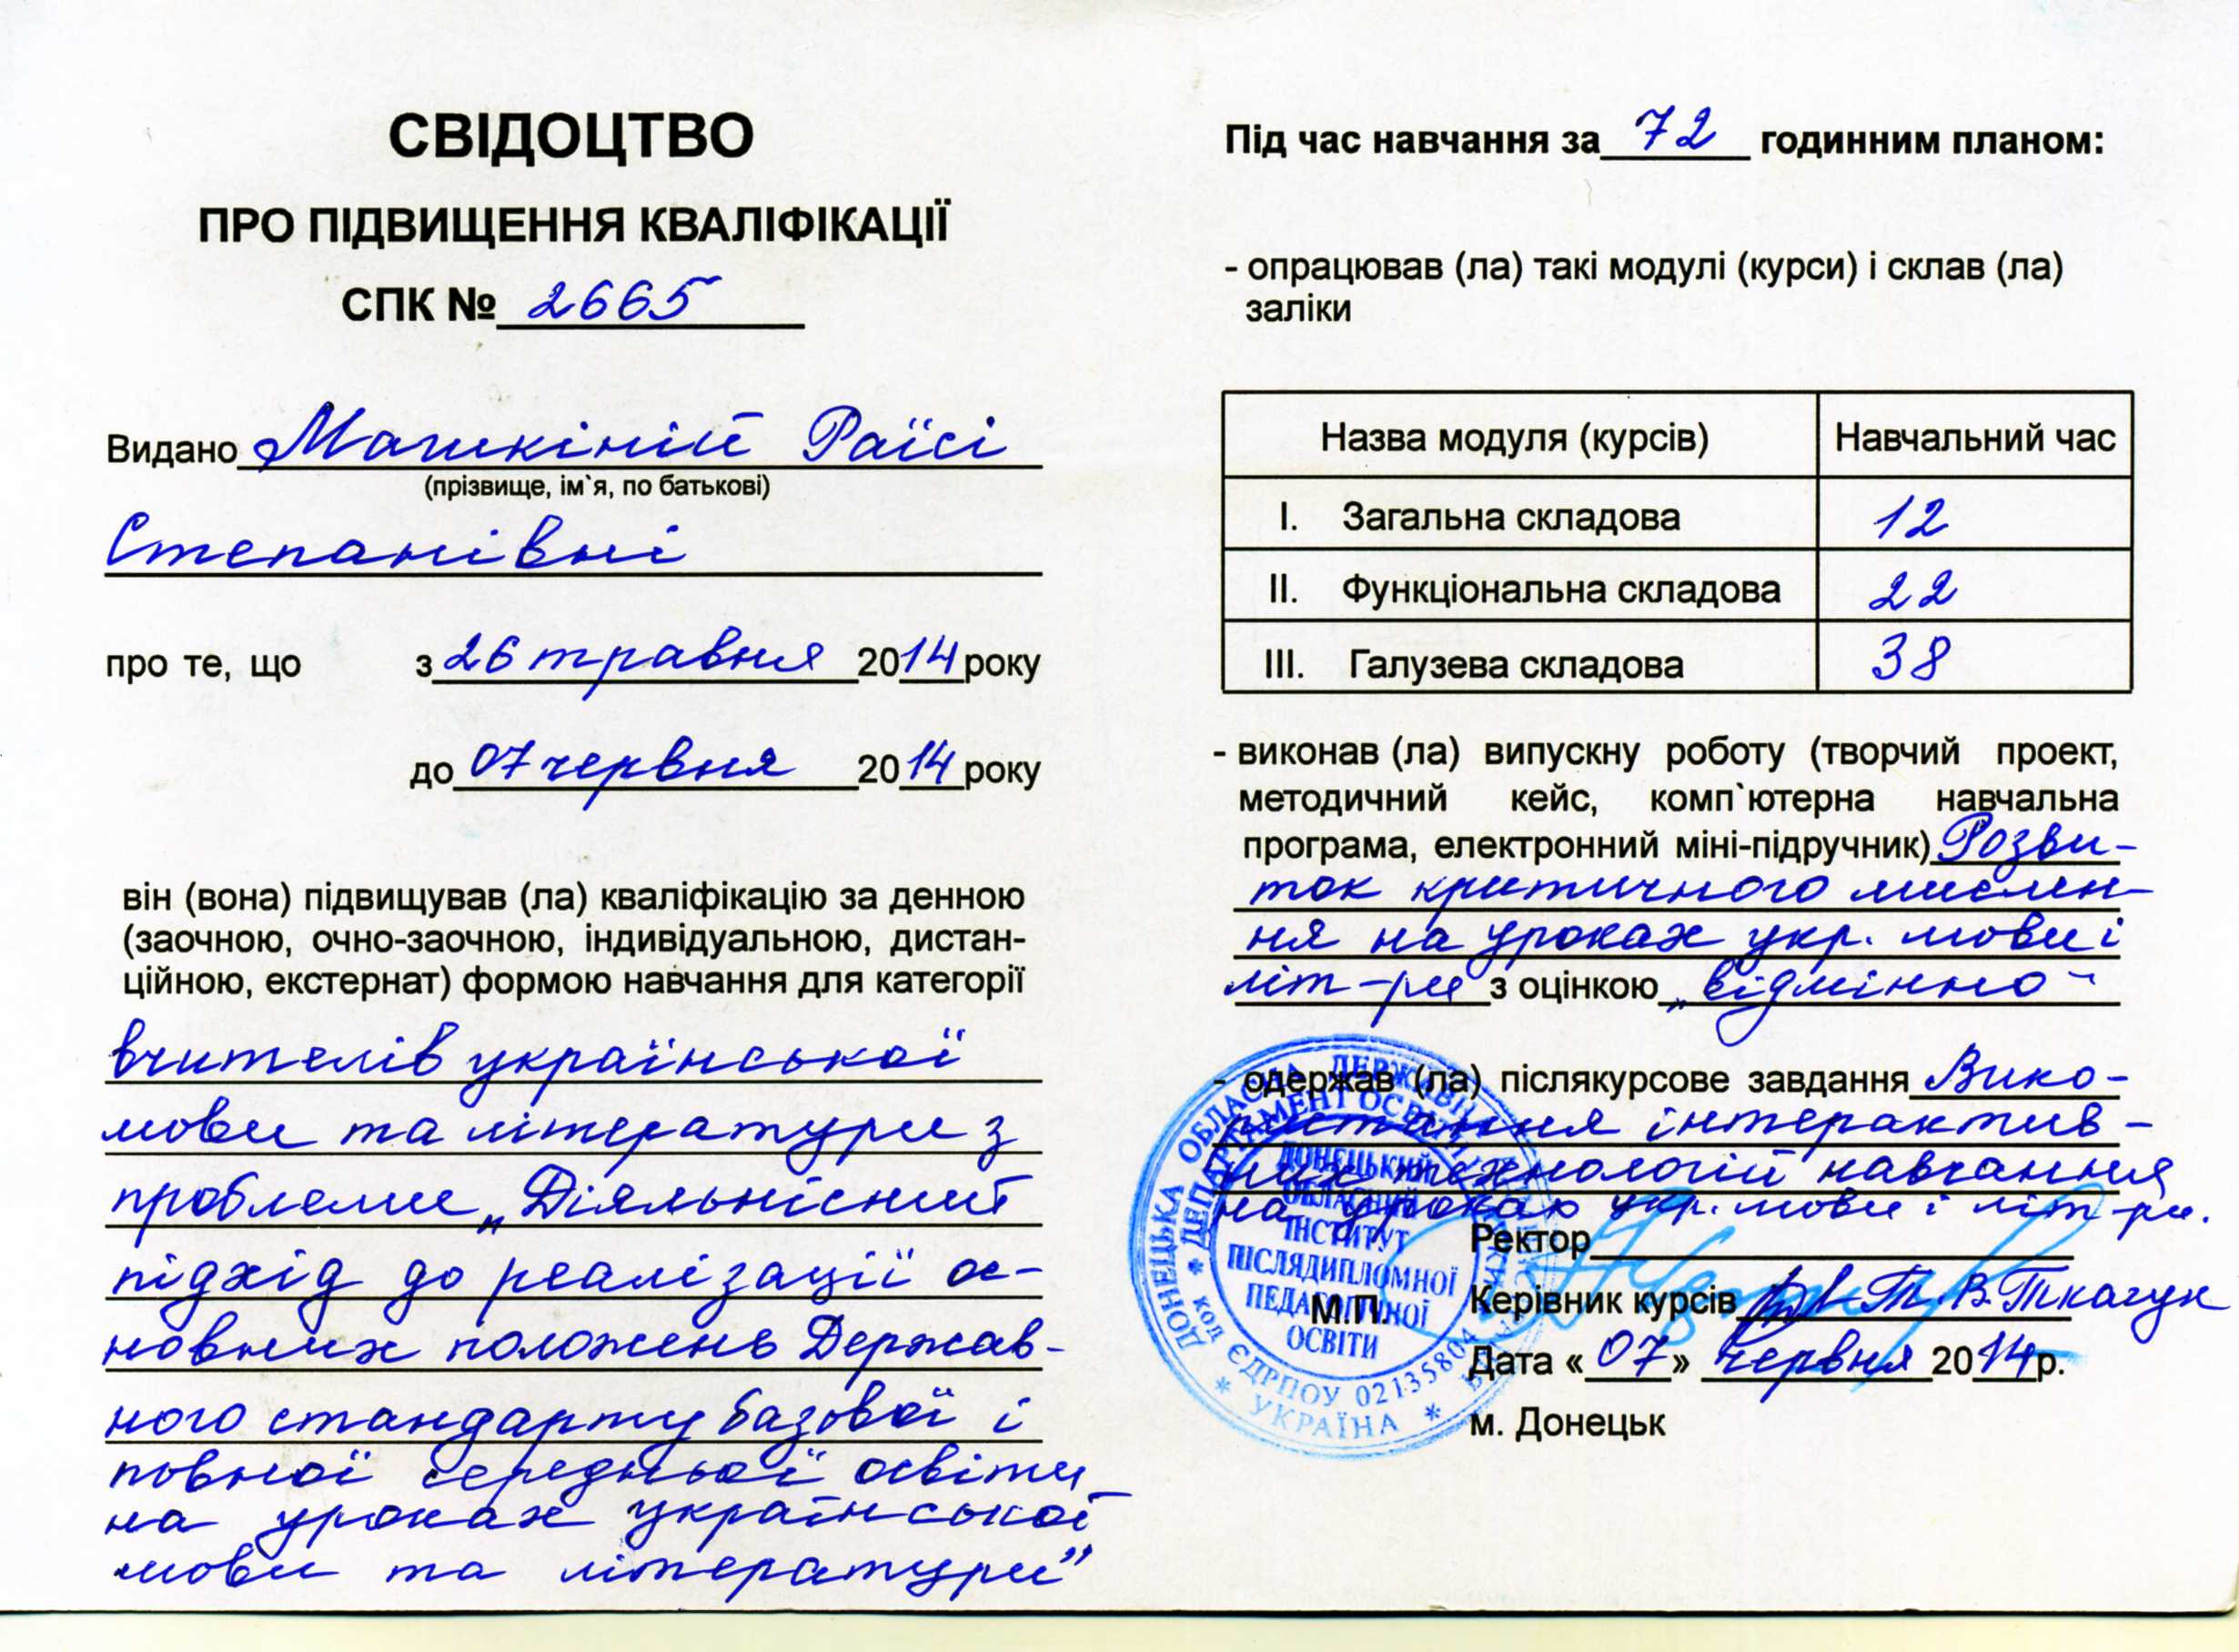 СВІДОЦТВО
ПРО ПІДВИЩЕННЯ КВАЛІФІКАЦІЇ
СПК № 2665
Видано Машкіній Раїсі
(прізвище, ім`я, по батькові)
Степанівні
про те, що з 26 травня 2014 року
до 07 червня 2014 року
він (вона) підвищував (ла) кваліфікацію за денною
(заочною, очно-заочною, індивідуальною, дистан-
ційною, екстернат) формою навчання для категорії
вчителів української
мови та літератури з
проблеми „Діяльнісний
підхід до реалізації ос-
новних положень Держав-
ного стандарту базової і
повної середньої освіти
на уроках української
мови та літератури”
Під час навчання за 72 годинним планом:
- опрацював (ла) такі модулі (курси) і склав (ла)
заліки
Назва модуля (курсів) Навчальний час
I. Загальна складова 12
II. Функціональна складова 22
III. Галузева складова 38
- виконав (ла) випускну роботу (творчий проект,
методичний кейс, комп`ютерна навчальна
програма, електронний міні-підручник) Розви-
ток критичного мислен-
ня на уроках укр. мови і
літ-ри з оцінкою „відмінно“
- одержав (ла) післякурсове завдання Вико-
ристання інтерактив-
них технологій навчання
на уроках укр. мови і літ-ри.
Ректор
М.П.
Керівник курсів Т.В.Ткачук
Дата «07» червня 2014р.
м. Донецьк
ДОНЕЦЬКА ОБЛАСНА ДЕРЖАВНА
ДЕПАРТАМЕНТ ОСВІТИ І НАУКИ
ДОНЕЦЬКИЙ
ОБЛАСНИЙ
ІНСТИТУТ
ПІСЛЯДИПЛОМНОЇ
ПЕДАГОГІЧНОЇ
ОСВІТИ
код ЄДРПОУ 02135804
* УКРАЇНА *